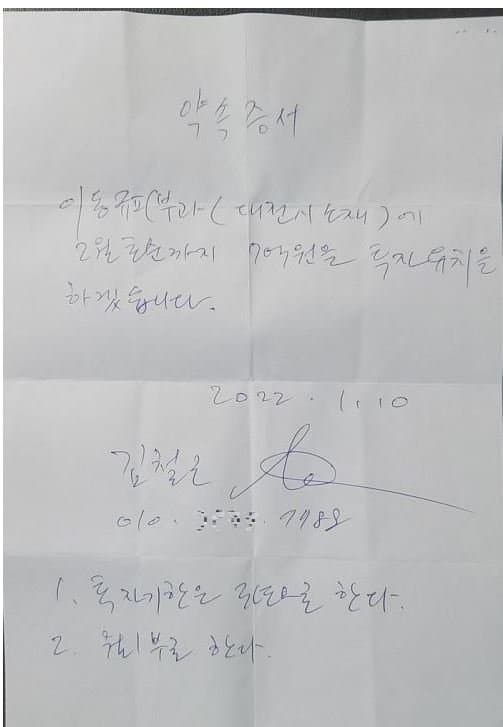 약속증서
이동규피부과(대전시소재)에
2월초순까지 7억원을 투자유치를
하겠습니다.
2022. 1. 10
김철
010. 7788
1. 투자기한은 로 한다.
2. 부로 한다.